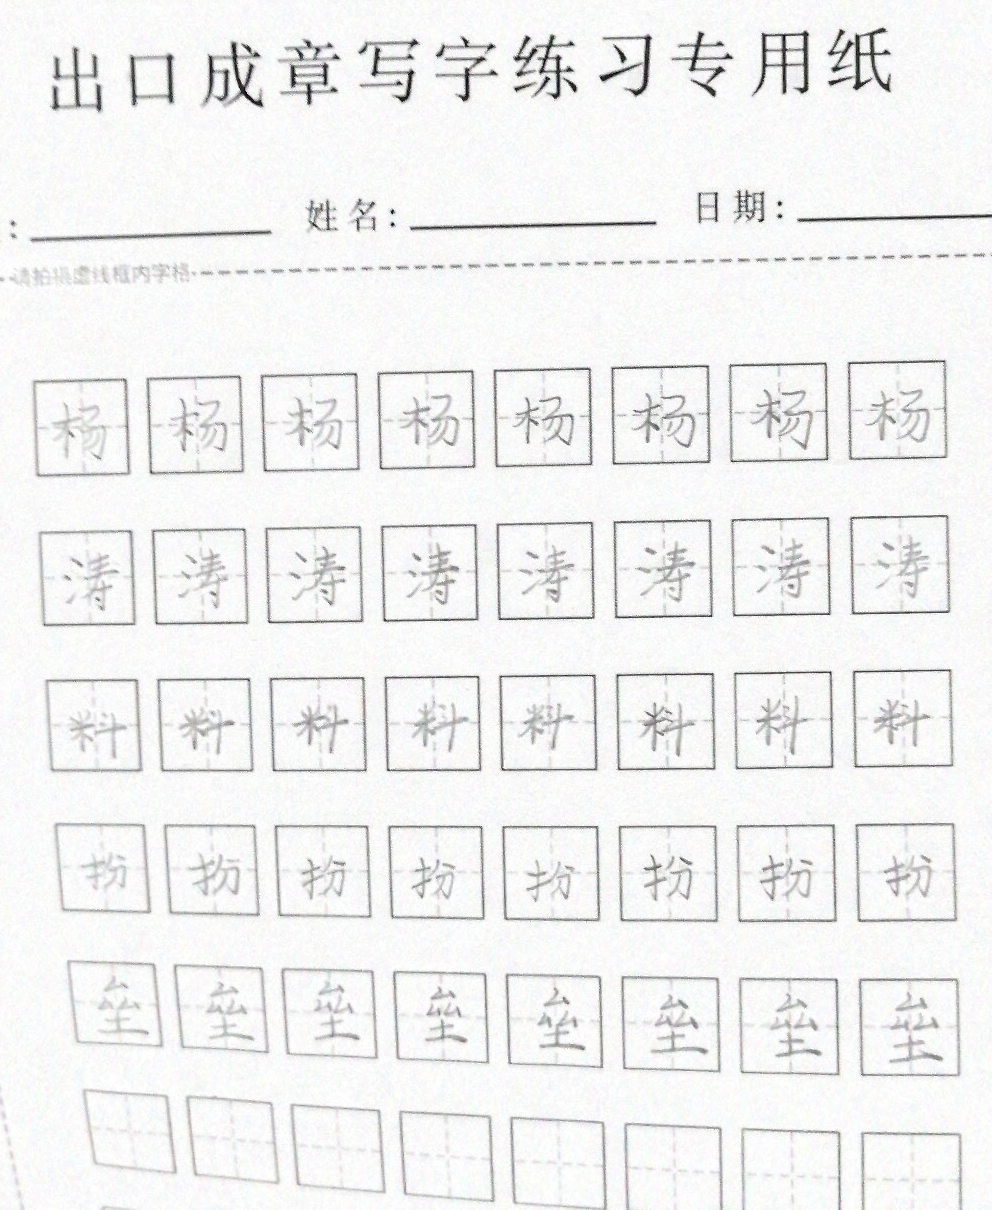 出口成章写字练习专用纸
: 姓名: 日期:
请拍摄虚线框内字格
杨 杨 杨 杨 杨 杨 杨 杨
涛 涛 涛 涛 涛 涛 涛 涛
料 料 料 料 料 料 料 料
扮 扮 扮 扮 扮 扮 扮 扮
垒 垒 垒 垒 垒 垒 垒 垒